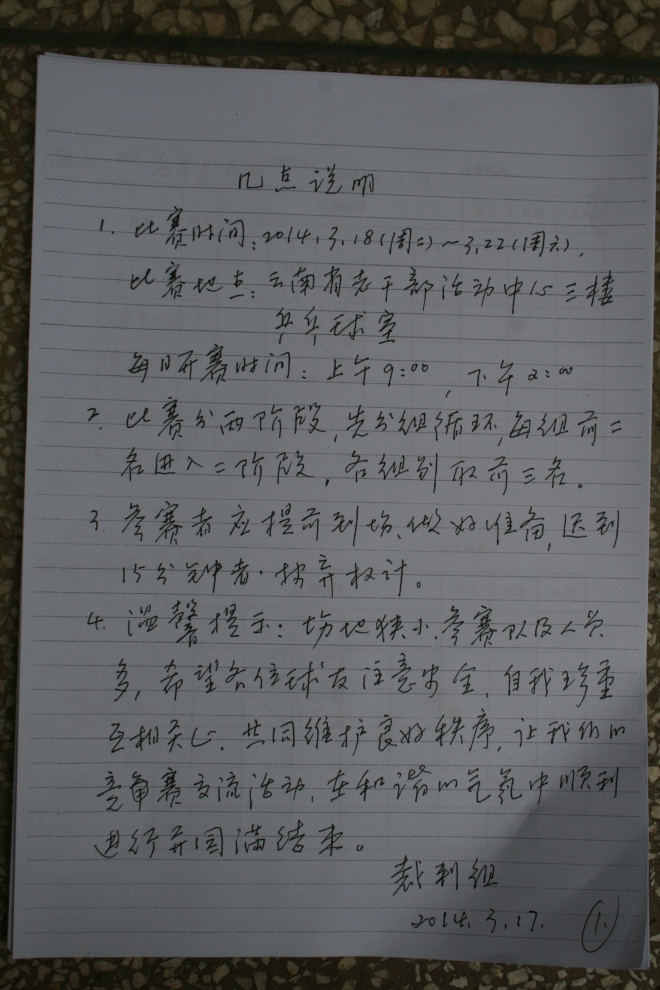 几点说明
1. 比赛时间：2014.3.18(周二)~3.22(周六)，
比赛地点：云南省老干部活动中心三楼
乒乓球室
每日开赛时间：上午9:00，下午2:00
2. 比赛分两阶段，先分组循环，每组前二
名进入二阶段，各组别取前三名。
3. 参赛者应提前到场、做好准备，迟到
15分钟者·按弃权计。
4. 温馨提示：场地狭小，参赛队及人员
多，希望各位球友注意安全，自我珍重
互相关心，共同维护良好秩序，让我们的
竞赛交流活动，在和谐的气氛中顺利
进行并圆满结束。
裁判组
2014.3.17.
1.